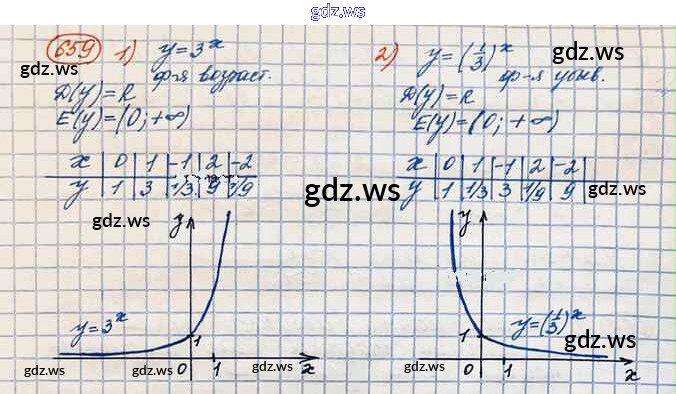 gdz.ws
659 1) y = 3^x
ф-я возраст.
D(y) = R
E(y) = (0; +∞)
x | 0 | 1 | -1 | 2 | -2
y | 1 | 3 | 1/3 | 9 | 1/9
y
y = 3^x
1
0 1 x
2) y = (1/3)^x
ф-я убыв.
D(y) = R
E(y) = (0; +∞)
x | 0 | 1 | -1 | 2 | -2
y | 1 | 1/3 | 3 | 1/9 | 9
y
1
y = (1/3)^x
0 1 x
gdz.ws
gdz.ws
gdz.ws
gdz.ws
gdz.ws
gdz.ws
gdz.ws
gdz.ws
gdz.ws
gdz.ws
gdz.ws
gdz.ws
gdz.ws
gdz.ws